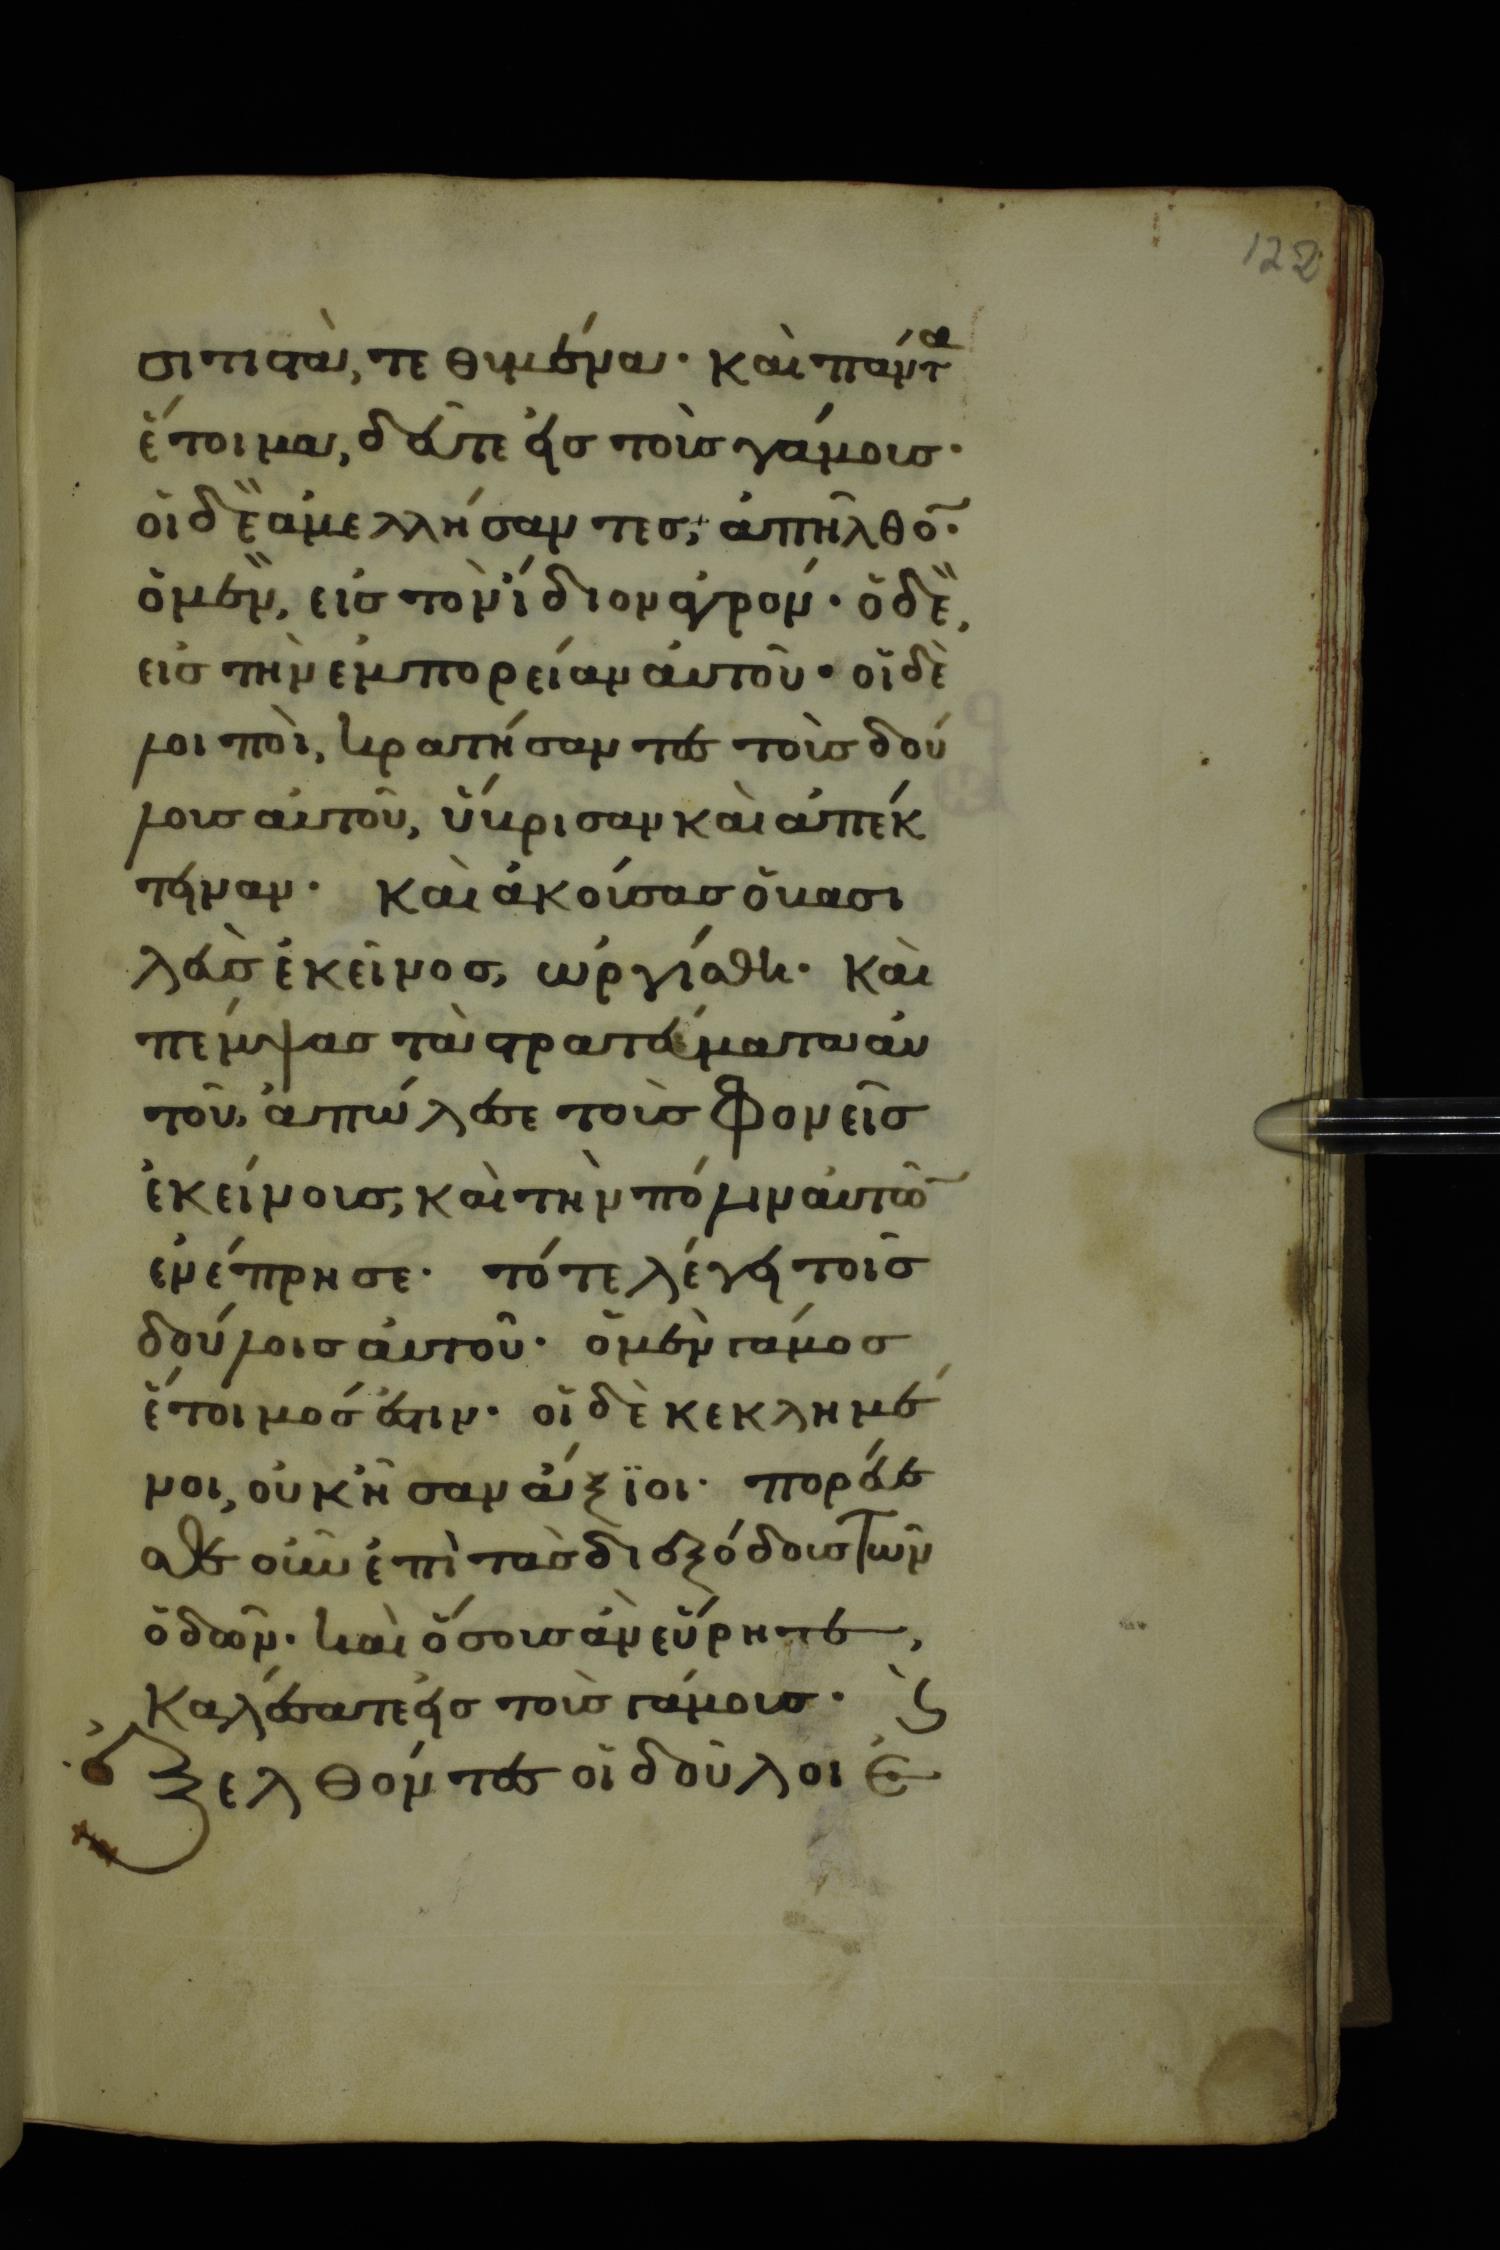 122
σιτιστὰ, τεθυμένα· καὶ πάντα
ἕτοιμα, δεῦτε εἰς τοὺς γάμους·
οἱ δὲ ἀμελλήσαντες, ἀπῆλθο̅·
ὁ μὲν, εἰς τὸν ἴδιον ἀγρόν· ὁ δὲ,
εἰς τὴν ἐμπορείαν αὐτοῦ· οἱ δὲ
λοιποὶ, κρατήσαντες τοὺς δού
λους αὐτοῦ, ὕβρισαν καὶ ἀπέκ
τειναν· καὶ ἀκούσας ὁ βασι
λεὺς ἐκεῖνος, ὠργίσθη· καὶ
πέμψας τὰ στρατεύματα αὐ
τοῦ, ἀπώλεσε τοὺς φονεῖς
ἐκείνους, καὶ τὴν πόλιν αὐτῶ̅
ἐνέπρησε· τότε λέγει τοῖς
δούλοις αὐτοῦ· ὁ μὲν γάμος
ἕτοιμός ἐστιν· οἱ δὲ κεκλημέ
νοι, οὐκ ἦσαν ἄξϊοι· πορεύε
σθε οὖν ἐπὶ τὰς διεξόδους τῶν
ὁδῶν· καὶ ὅσους ἂν εὕρητε,
καλέσατε εἰς τοὺς γάμους· ϗ̀
ἐξελθόντες οἱ δοῦλοι ἐ